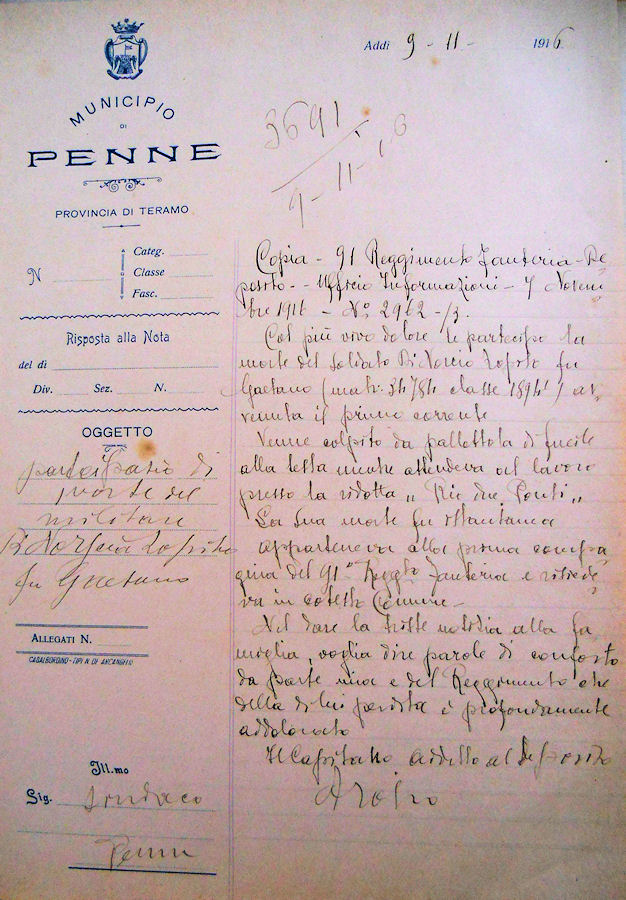 Addì 9 - 11 - 1916
MUNICIPIO
DI
PENNE
PROVINCIA DI TERAMO
N
Categ.
Classe
Fasc.
Risposta alla Nota
del dì
Div. Sez. N.
OGGETTO
partecipazio di
morte del
militare
Di Norscia Lopito
fu Gaetano
ALLEGATI N.
CASALBORDINO - TIPI N. DE ARCANGELIS
Ill.mo
Sig. Sindaco
Penne
3691
9-11-16
Copia - 91 Reggimento Fanteria - De
posito - - Ufficio Informazioni - 7 Novem
bre 1916 - N° 2962 -/3.
Col più vivo dolore le partecipo la
morte del soldato Di Norscio Lopito fu
Gaetano (matr. 34784 classe 1894) av,
venuta il primo corrente
Venne colpito da pallottola di fucile
alla testa mentre attendeva al lavoro
presso la ridotta „ Rio due Ponti „
La sua morte fu istantanea
apparteneva alla prima compa
gnia del 91° Reggto Fanteria e risiede
va in cotesto Comune -
Nel dare la triste notizia alla fa
miglia, voglia dire parole di conforto
da parte mia e del Reggimento che
della di lui perdita è profondamente
addolorato
Il Capitano addetto al deposito